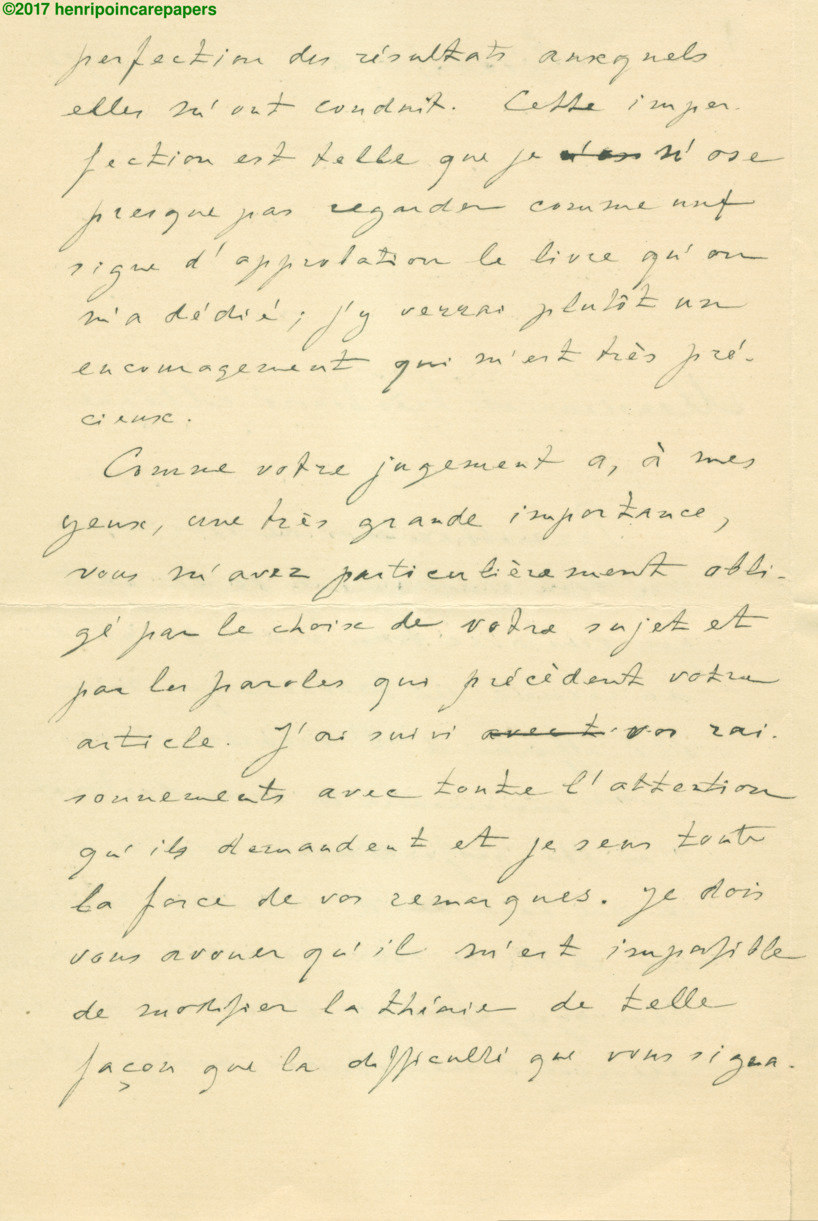 ©2017 henripoincarepapers
perfection des résultats auxquels
elles m'ont conduit. Cette imper-
fection est telle que je n'ose
presque pas regarder comme un
signe d'approbation le livre qu'on
m'a dédié; j'y verrai plutôt un
encouragement qui m'est très pré-
cieux.
Comme votre jugement a, à mes
yeux, une très grande importance,
vous m'avez particulièrement obli-
gé par le choix de votre sujet et
par les paroles qui précèdent votre
article. J'ai suivi vos rai-
sonnements avec toute l'attention
qu'ils demandent et je sens toute
la force de vos remarques. Je dois
vous avouer qu'il m'est impossible
de modifier la théorie de telle
façon que la difficulté que vous signa-